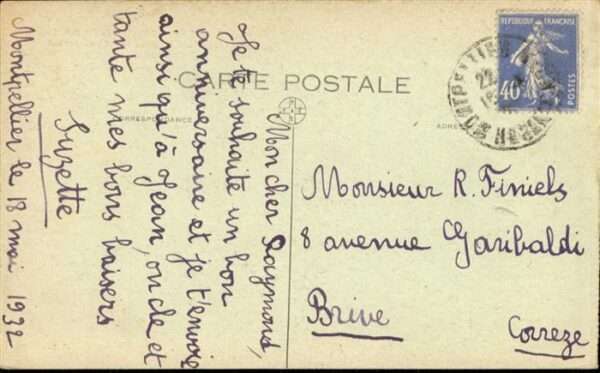 CARTE POSTALE
CORRESPONDANCE
Mon cher Raymond,
Je te souhaite un bon
anniversaire et je t'envoie
ainsi qu'à Jean, oncle et
tante mes bons baisers
Suzette
Montpellier le 18 mai 1932
REPUBLIQUE FRANÇAISE
40c
POSTES
MONTPELLIER
22
HERAULT
Monsieur R. Finiels
8 avenue Garibaldi
Brive
Correze